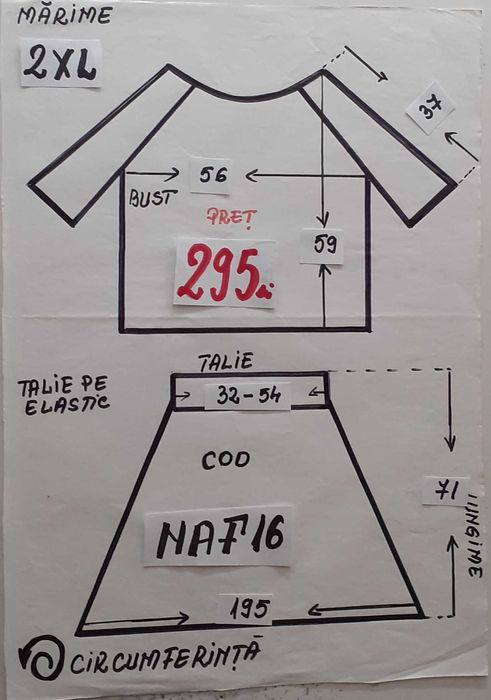 MĂRIME
2XL
37
56
BUST
PREȚ
59
295 lei
TALIE
TALIE PE
ELASTIC
32-54
COD
71
LUNGIME
NAF16
195
CIRCUMFERINȚĂ